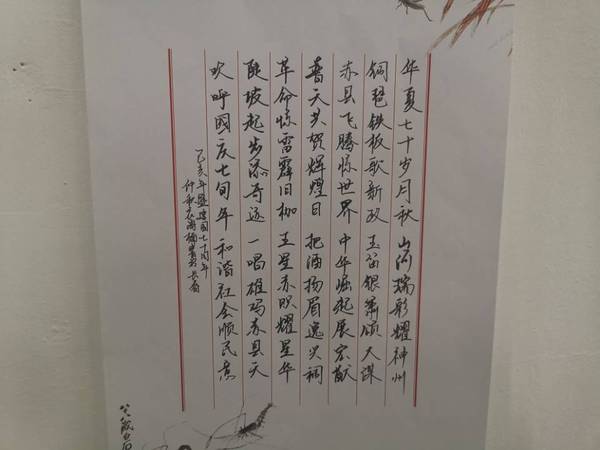 华夏七十岁月秋 山河瑞彩耀神州
铜琶铁板歌新政 玉笛银箫颂大谋
赤县飞腾惊世界 中华崛起展宏猷
普天共贺辉煌日 把酒扬眉逸兴稠
革命惊雷霹旧枷 五星赤映耀星华
陂坡起步添奇逐 一唱雄鸡赤县天
欢呼國庆七旬年 和谐社会顺民意
乙亥年盛建国七十周年
仲秋